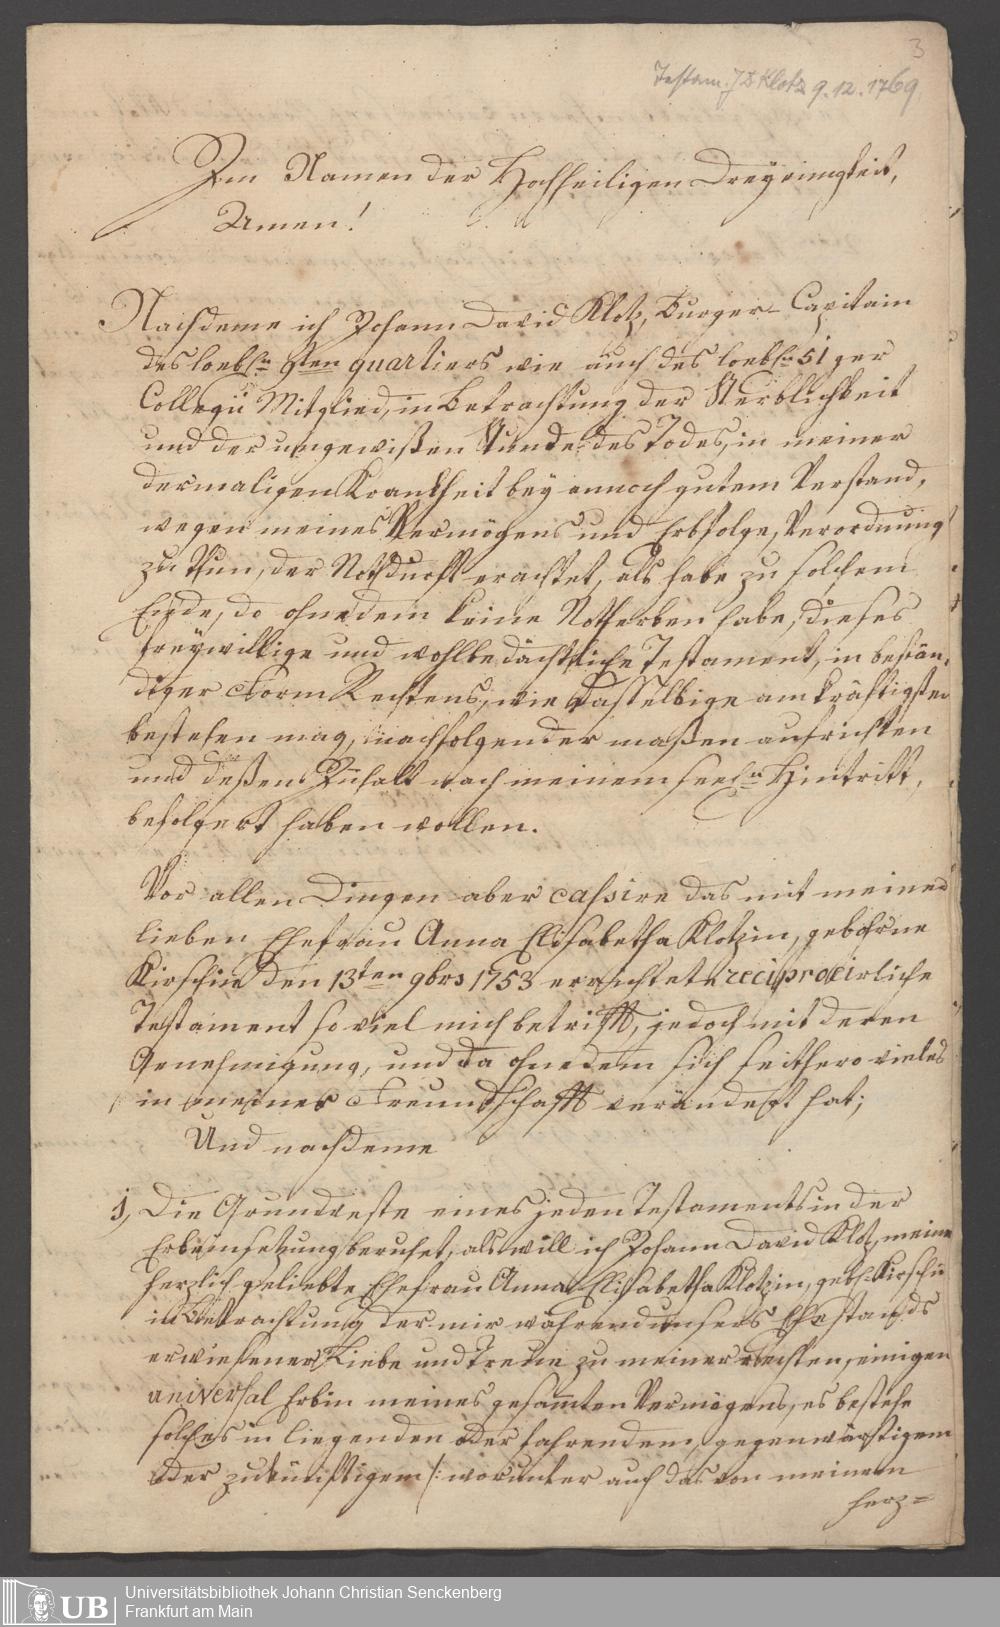 3
Testam. J D Klotz 9.12.1769.
Im Namen der Hochheiligen Dreyeinigkeit,
Amen!
Nachdeme ich Johann David Klotz, Burger-Capitain
des loebln. 9ten quartiers wie auch des loebln. 51 ger
Collegii Mitglied, in Betrachtung der Sterblichkeit
und der ungewißen Stunde des Todes, in meiner
dermaligen Krankheit bey annoch gutem Verstand,
wegen meines Vermögens und Erbfolge, Verordnung
zu thun, der Nothdurft erachtet, als habe zu solchem
Ende, da ohnedem keine Notherben habe, dieses
freywillige und wohlbedächtliche Testament, in bestän-
diger Form Rechtens, wie dasselbige am kräftigsten
bestehen mag, nachfolgender maßen aufrichten
und deßen Inhalt nach meinem seeln. Hintritt,
befolgert haben wollen.
Vor allen Dingen aber cassire das mit meiner
lieben Ehefrau Anna Elisabetha Klotzin, gebohrne
Kirschin den 13ten 9brs 1753 errichtete reciprocirliche
Testament so viel mich betrifft, jedoch mit deren
Genehmigung, und da ohnedem sich seithero vieles
in meiner Freundschafft verändert hat;
Und nachdeme
1, Die Grundveste eines jeden Testaments in der
Erbeinsetzung beruhet, als will ich Johann David Klotz, meine
herzlich geliebte Ehefrau Anna Elisabetha Klotzin, gebh. Kirschin
in Betrachtung der mir während unsers Ehestands
erwiesener Liebe und Treue zu meiner rechten, einigen
universal Erbin meines gesamten Vermögens, es bestehe
solches in liegenden oder fahrendem, gegenwärtigem
oder zukünftigem /: worunter auch das von meinem
herz=
UB
Universitätsbibliothek Johann Christian Senckenberg
Frankfurt am Main